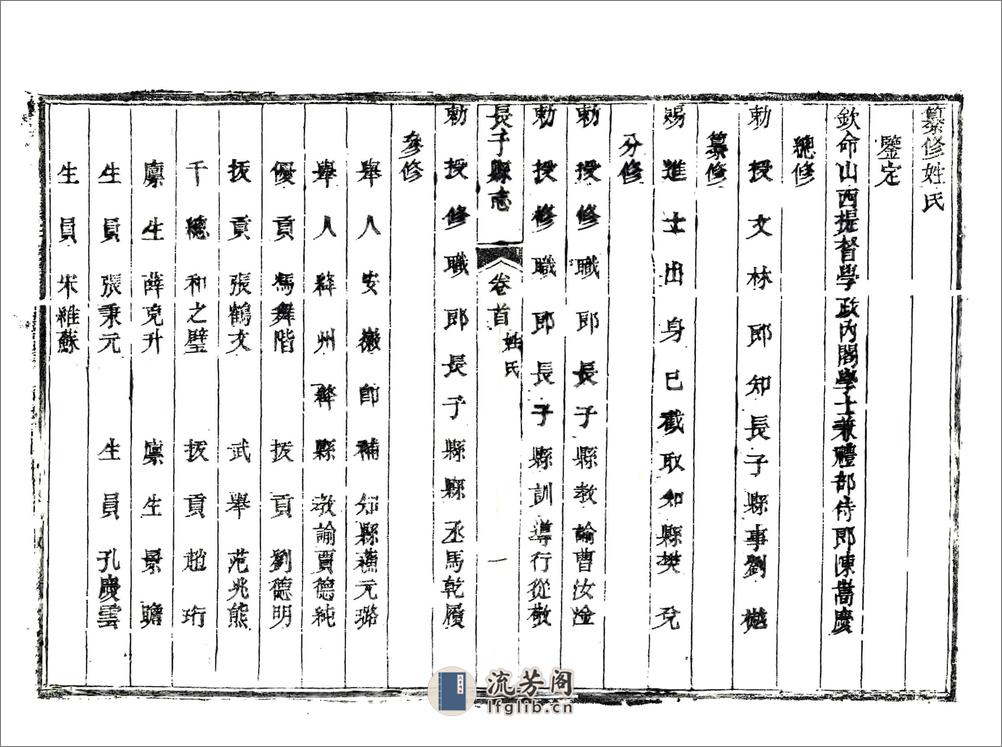 纂修姓氏
鑒定
欽命山西提督學政內閣學士兼禮部侍郎陳嵩慶
總修
勅授文林郎知長子縣事劉樾
纂修
賜進士出身已截取知縣樊兌
分修
勅授修職郎長子縣教諭曹汝淦
勅授修職郎長子縣訓導行從敬
長子縣志 卷首 姓氏 一
勅授修職郎長子縣縣丞馬乾履
參修
舉人安徽即補知縣元璐
舉人絳州絳縣教諭賈德純
優貢馮舞階 拔貢劉德明
拔貢張鶴文 武舉范兆熊
千總和之璧 拔貢趙珩
廩生薛克升 廩生景瞻
生員張秉元 生員孔慶雲
生員宋維蘇
流芳阁
lfglib.cn